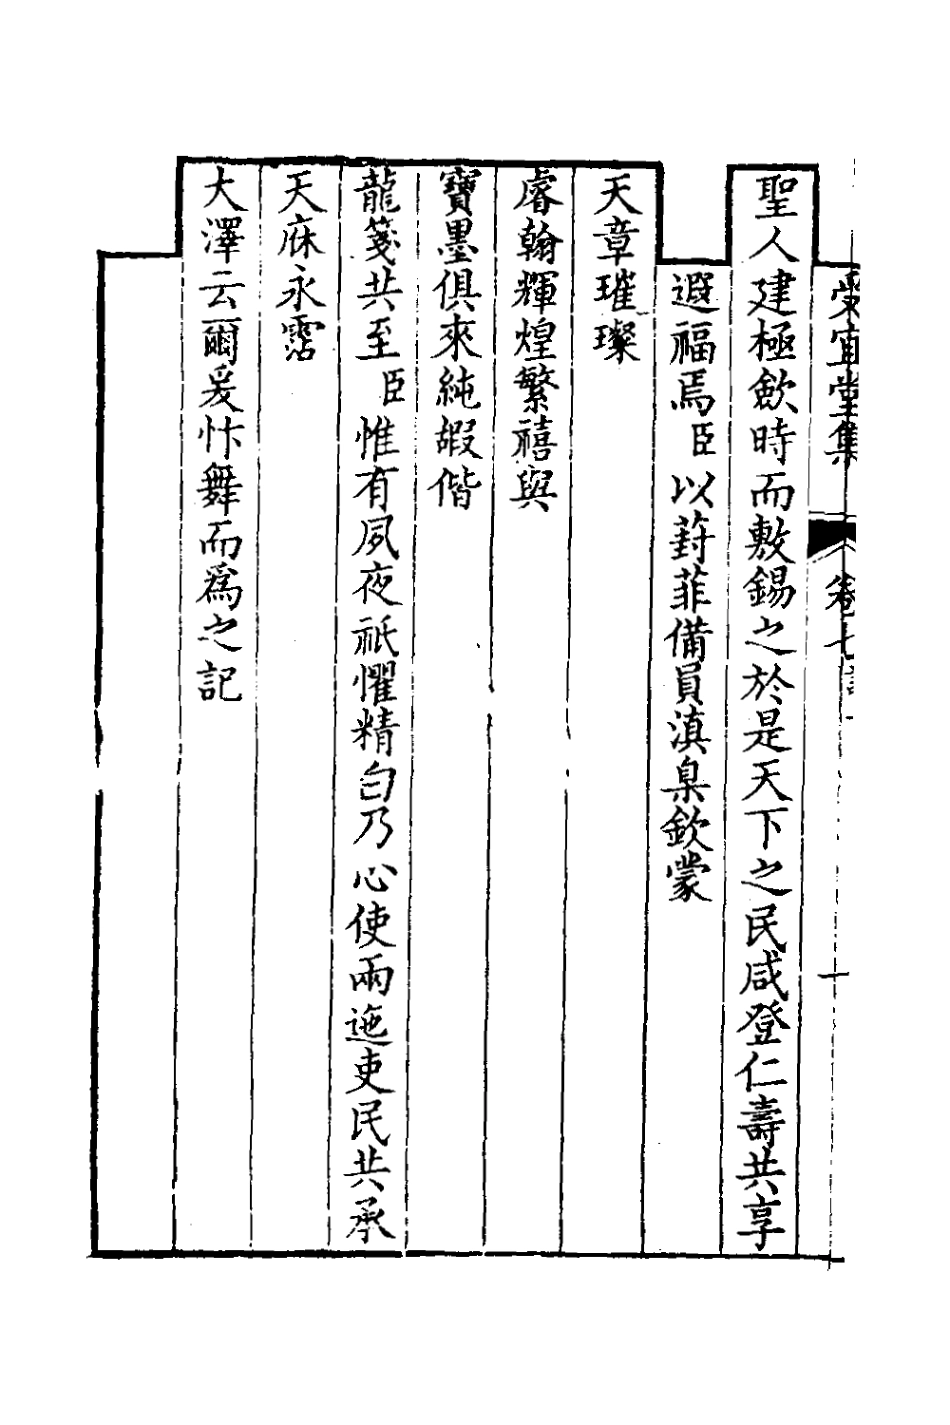 受宜堂集 卷七 記 一
聖人建極歛時而敷錫之於是天下之民咸登仁壽共享
遐福焉臣以葑菲備員滇臬欽蒙
天章璀璨
睿翰輝煌繁禧與
寶墨俱來純嘏偕
龍箋共至臣惟有夙夜祇懼精白乃心使兩迤吏民共承
天庥永霑
大澤云爾爰忭舞而為之記